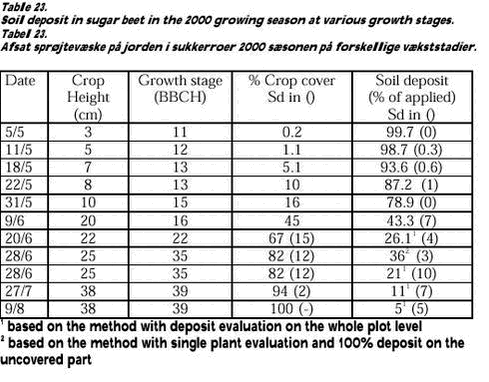 Table 23.
Soil deposit in sugar beet in the 2000 growing season at various growth stages.
Tabel 23.
Afsat sprøjtevæske på jorden i sukkerroer 2000 sæsonen på forskellige vækststadier.
Date Crop Height (cm) Growth stage (BBCH) % Crop cover Sd in () Soil deposit (% of applied) Sd in ()
5/5 3 11 0.2 99.7 (0)
11/5 5 12 1.1 98.7 (0.3)
18/5 7 13 5.1 93.6 (0.6)
22/5 8 13 10 87.2 (1)
31/5 10 15 16 78.9 (0)
9/6 20 16 45 43.3 (7)
20/6 22 22 67 (15) 26.1¹ (4)
28/6 25 35 82 (12) 36² (3)
28/6 25 35 82 (12) 21¹ (10)
27/7 38 39 94 (2) 11¹ (7)
9/8 38 39 100 (-) 5¹ (5)
¹ based on the method with deposit evaluation on the whole plot level
² based on the method with single plant evaluation and 100% deposit on the
uncovered part